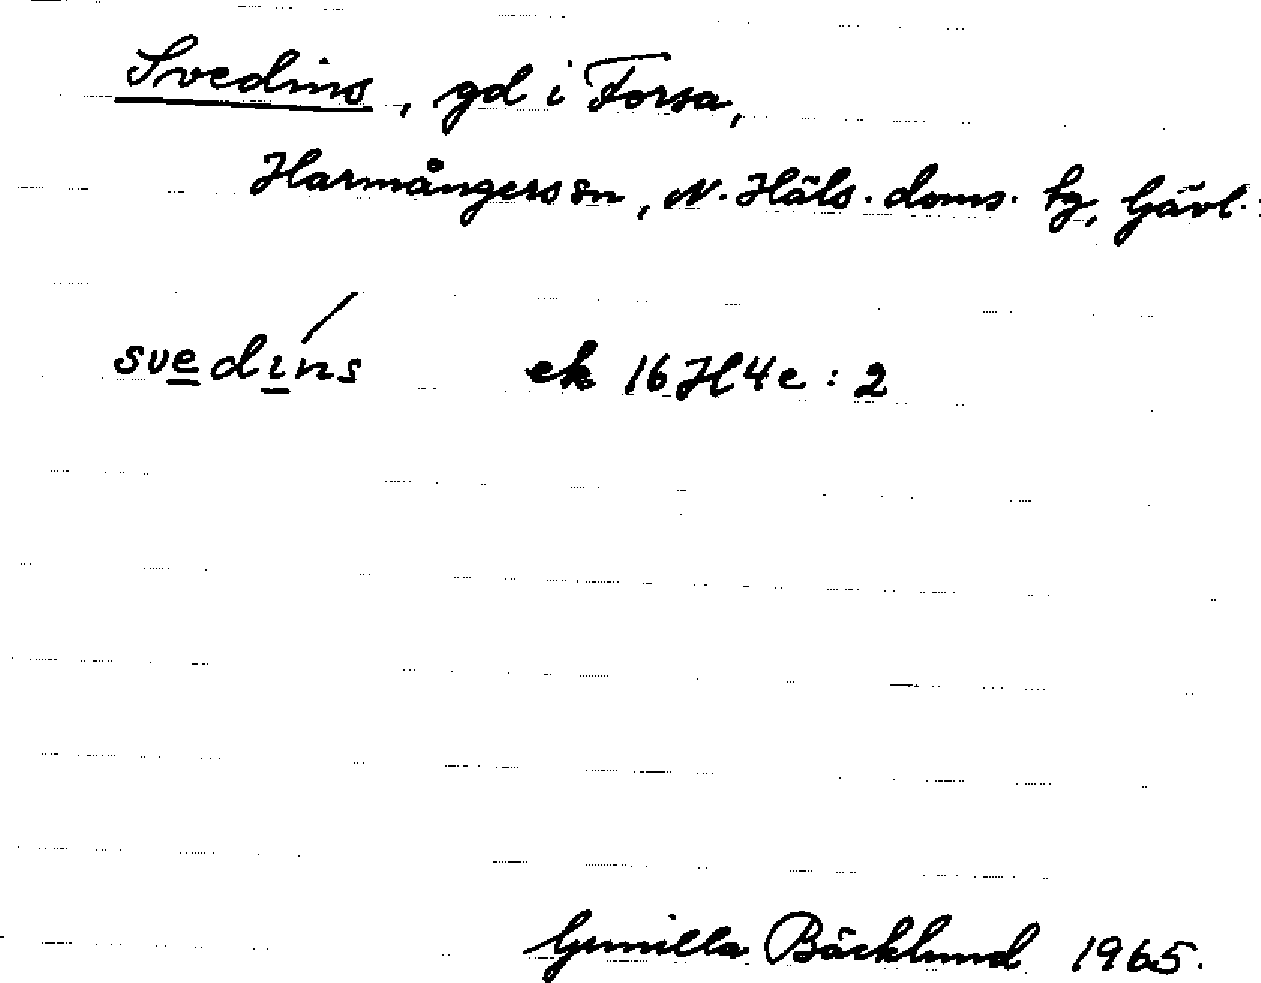 Svedins, gd i Forsa,
Harmångers sn, N. Häls. doms. tg, Gävl.
svedíns ek 16H4e:2
Gunilla Bäcklund 1965.